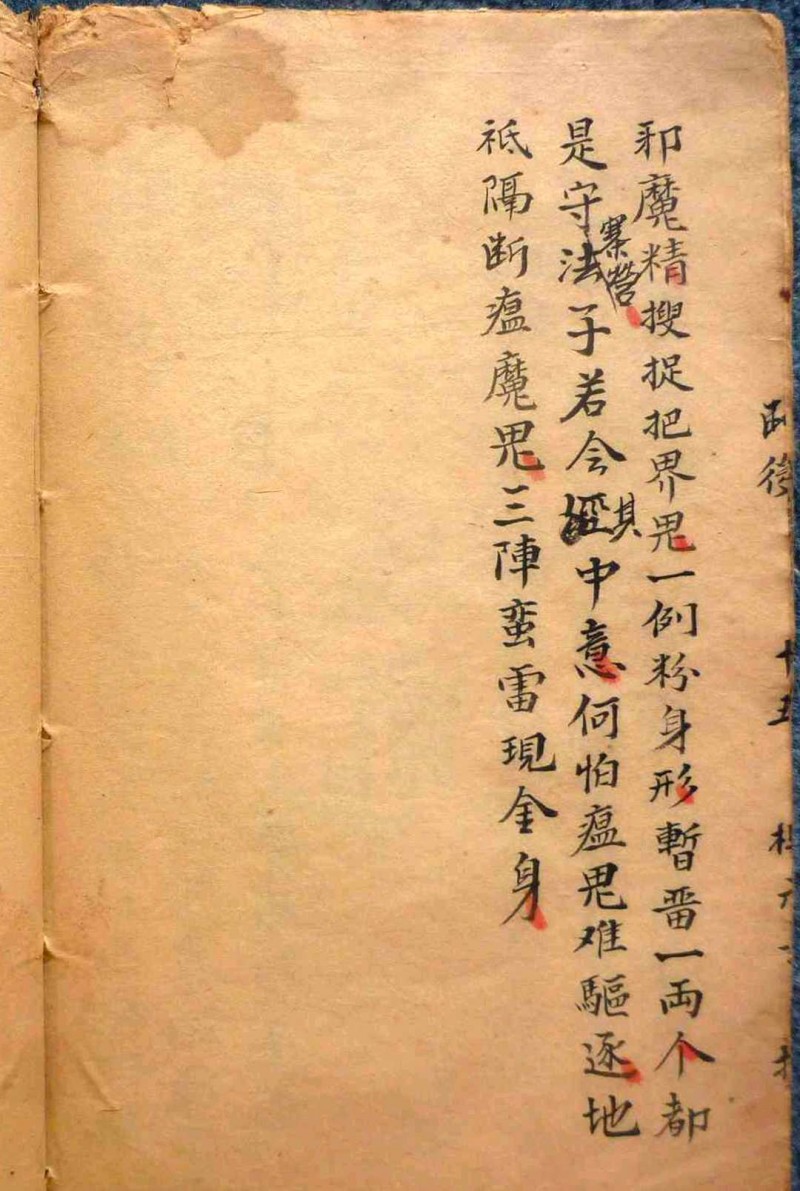 邪魔精搜捉把界鬼一例粉身形暫畱一両个都
是守寨营法子若会其中意何怕瘟鬼难驅逐地
祗隔断瘟魔鬼三陣蛮雷現金身
十五